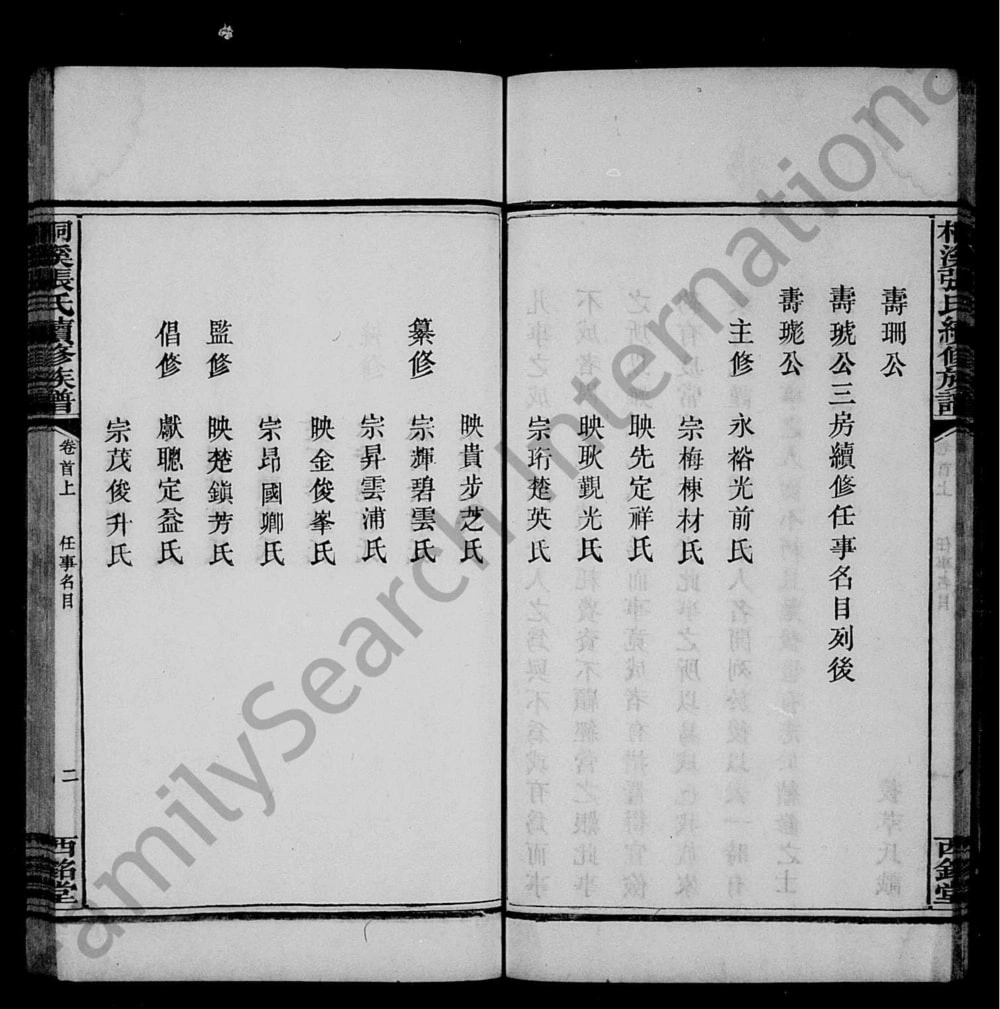 壽珊公
壽琥公三房續修任事名目列後
壽瓏公
主修 永裕光前氏
宗梅棟材氏
映先定祥氏
映耿觀光氏
宗珩楚英氏
映貴步芝氏
纂修 宗輝碧雲氏
宗昇雲浦氏
映金俊峯氏
宗昂國卿氏
監修 映楚鎮芳氏
倡修 獻聰定益氏
宗茂俊升氏
桐溪張氏續修族譜 卷首上 任事名目 二 西銘堂
FamilySearch International